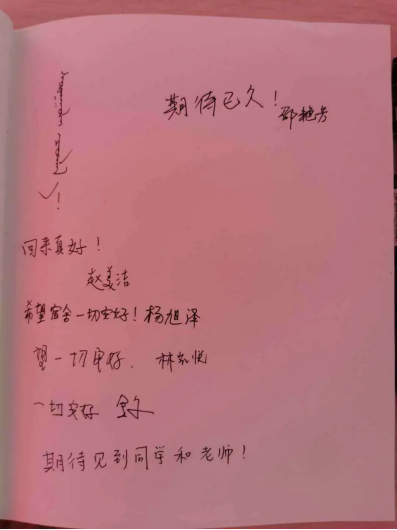 期待已久！
邵艳芳
回来真好！
赵美洁
希望宿舍一切安好！杨旭泽
望一切安好. 林 悦
一切安好
期待见到同学和老师！